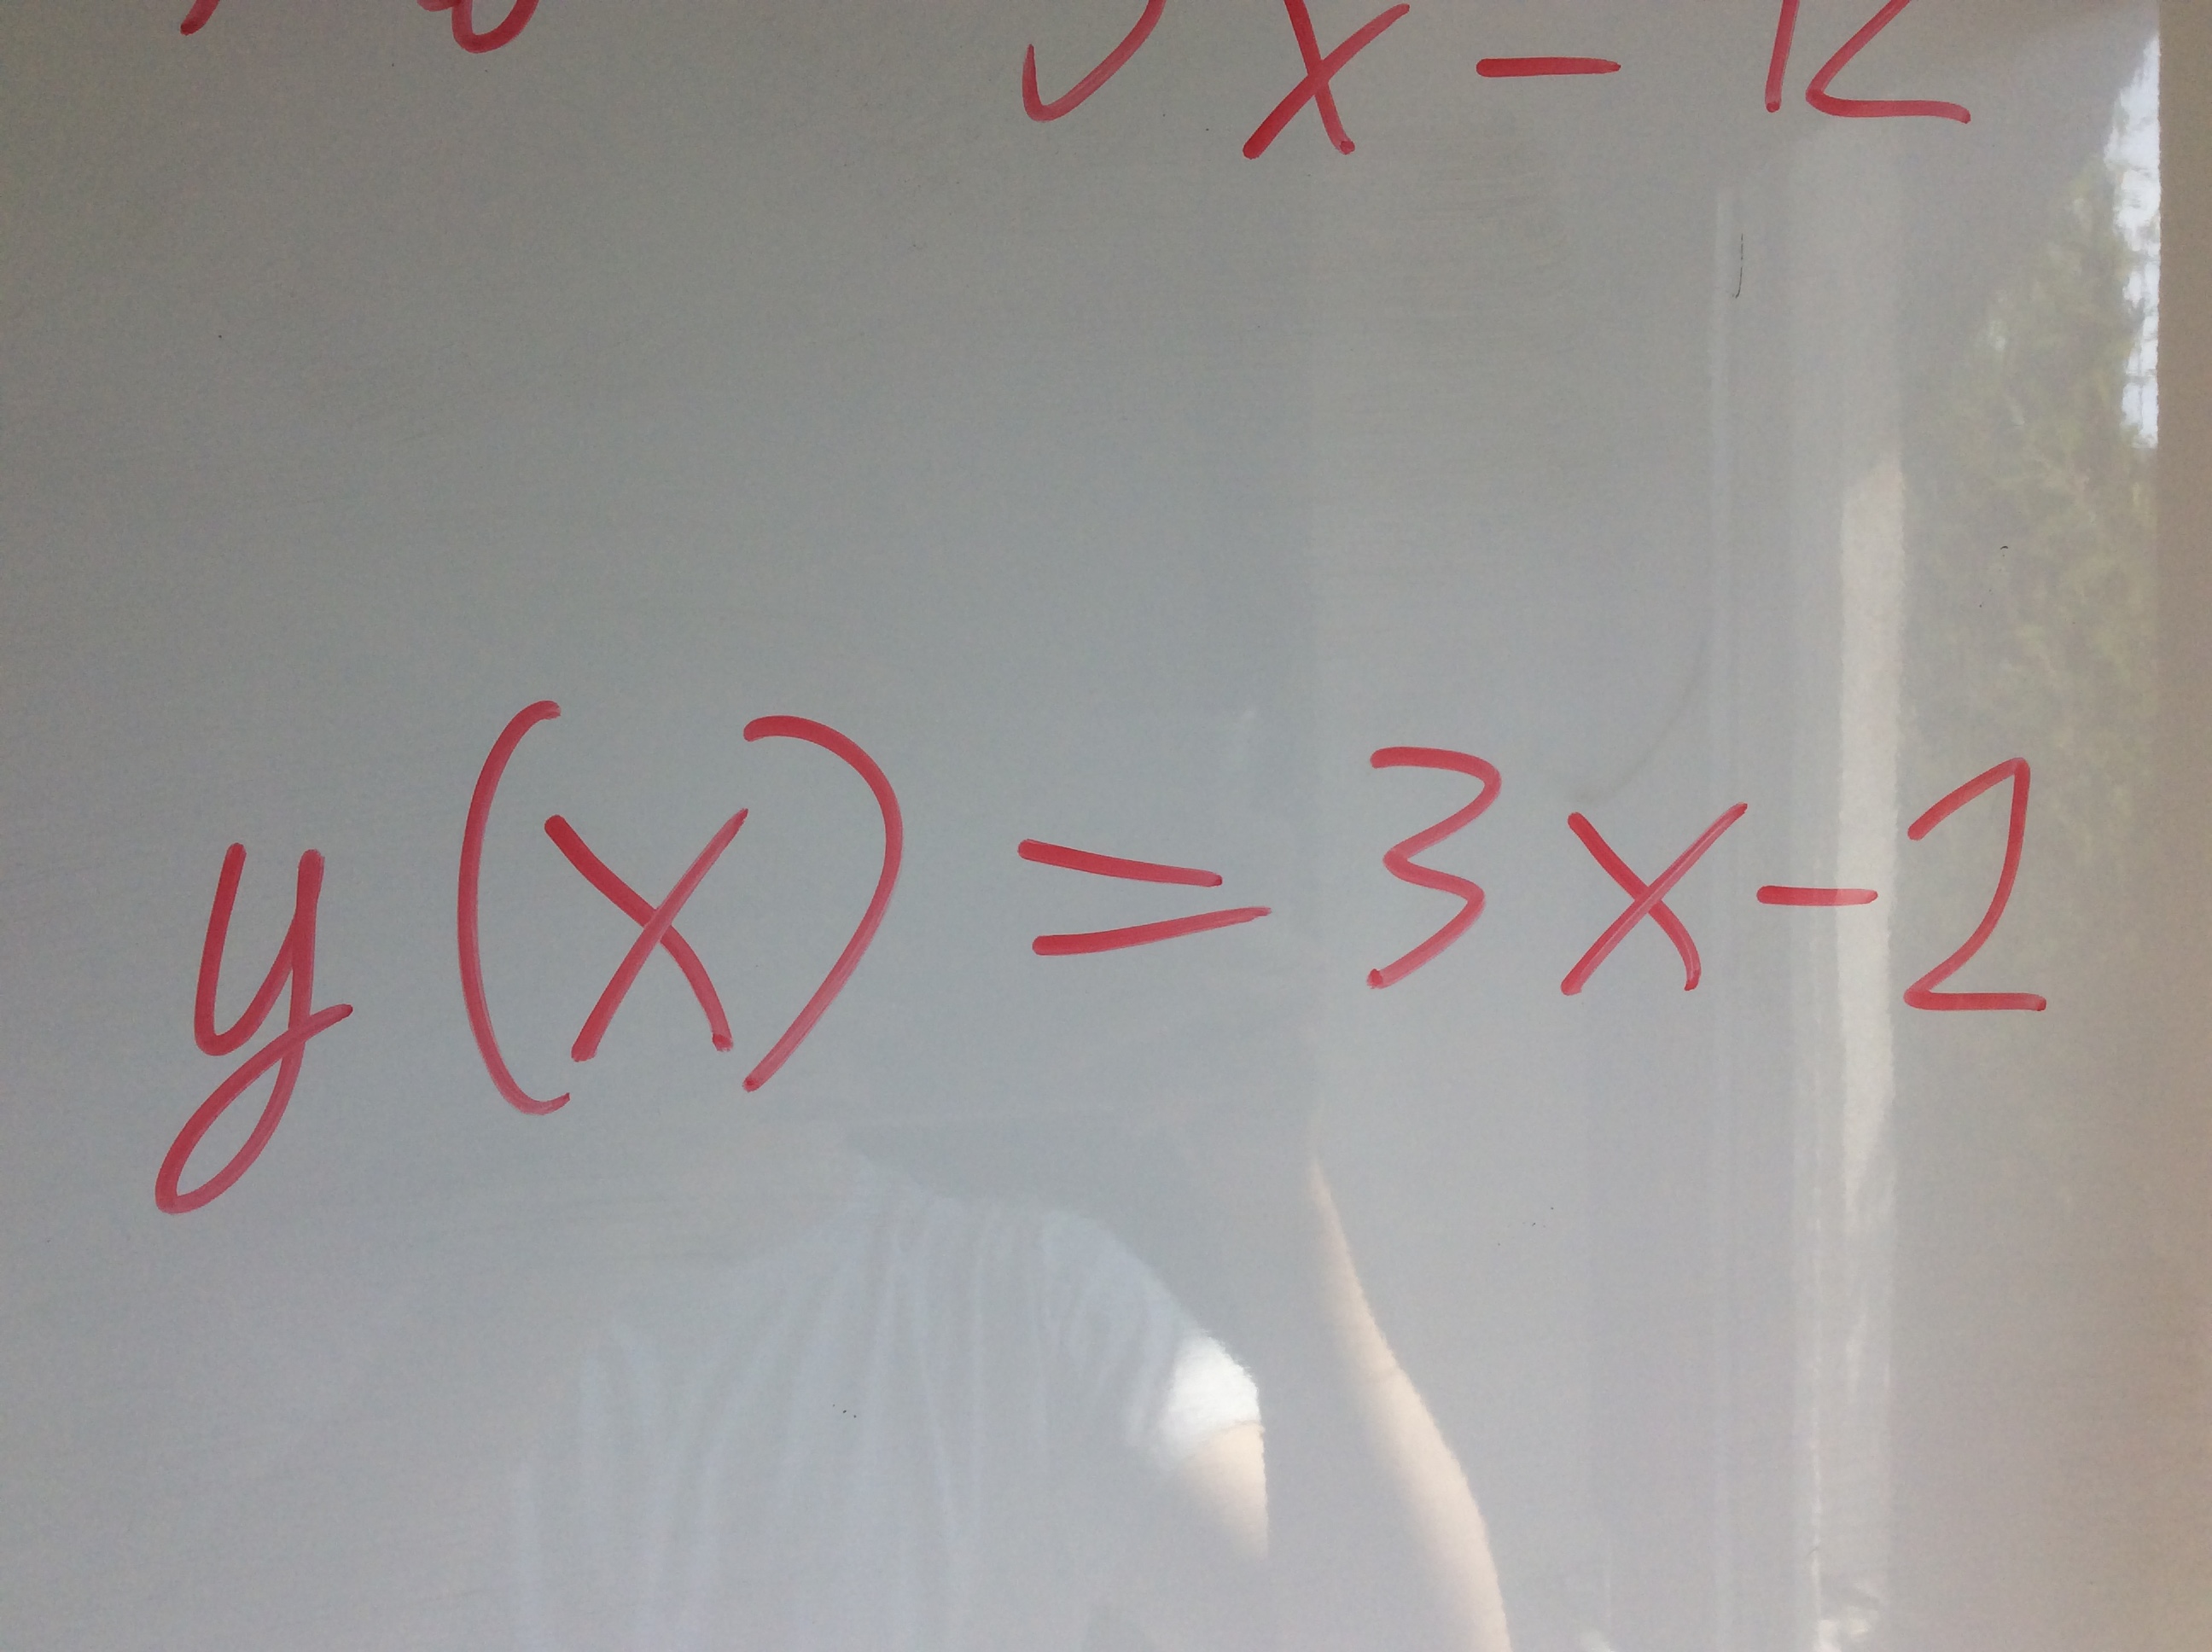 x - 12
y(x) = 3x-2